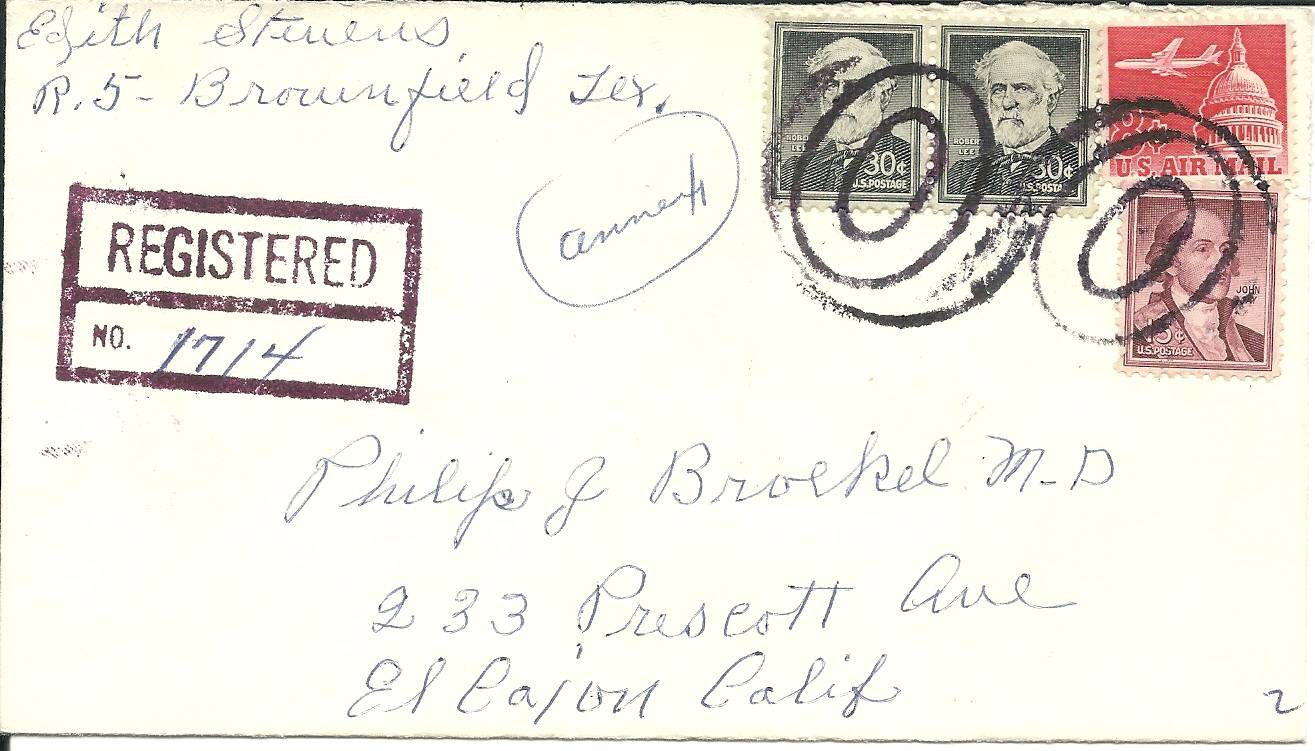 Edith Stevens
R. 5 - Brownfield Tex.
REGISTERED
NO. 1714
ROBERT
LEE
30¢
U.S. POSTAGE
ROBERT
LEE
30¢
U.S. POSTA
8¢
U.S. AIR MAIL
JOHN
JAY
15¢
U.S. POSTAGE
Philip J Broekel M-D
233 Prescott Ave
El Cajon Calif
2